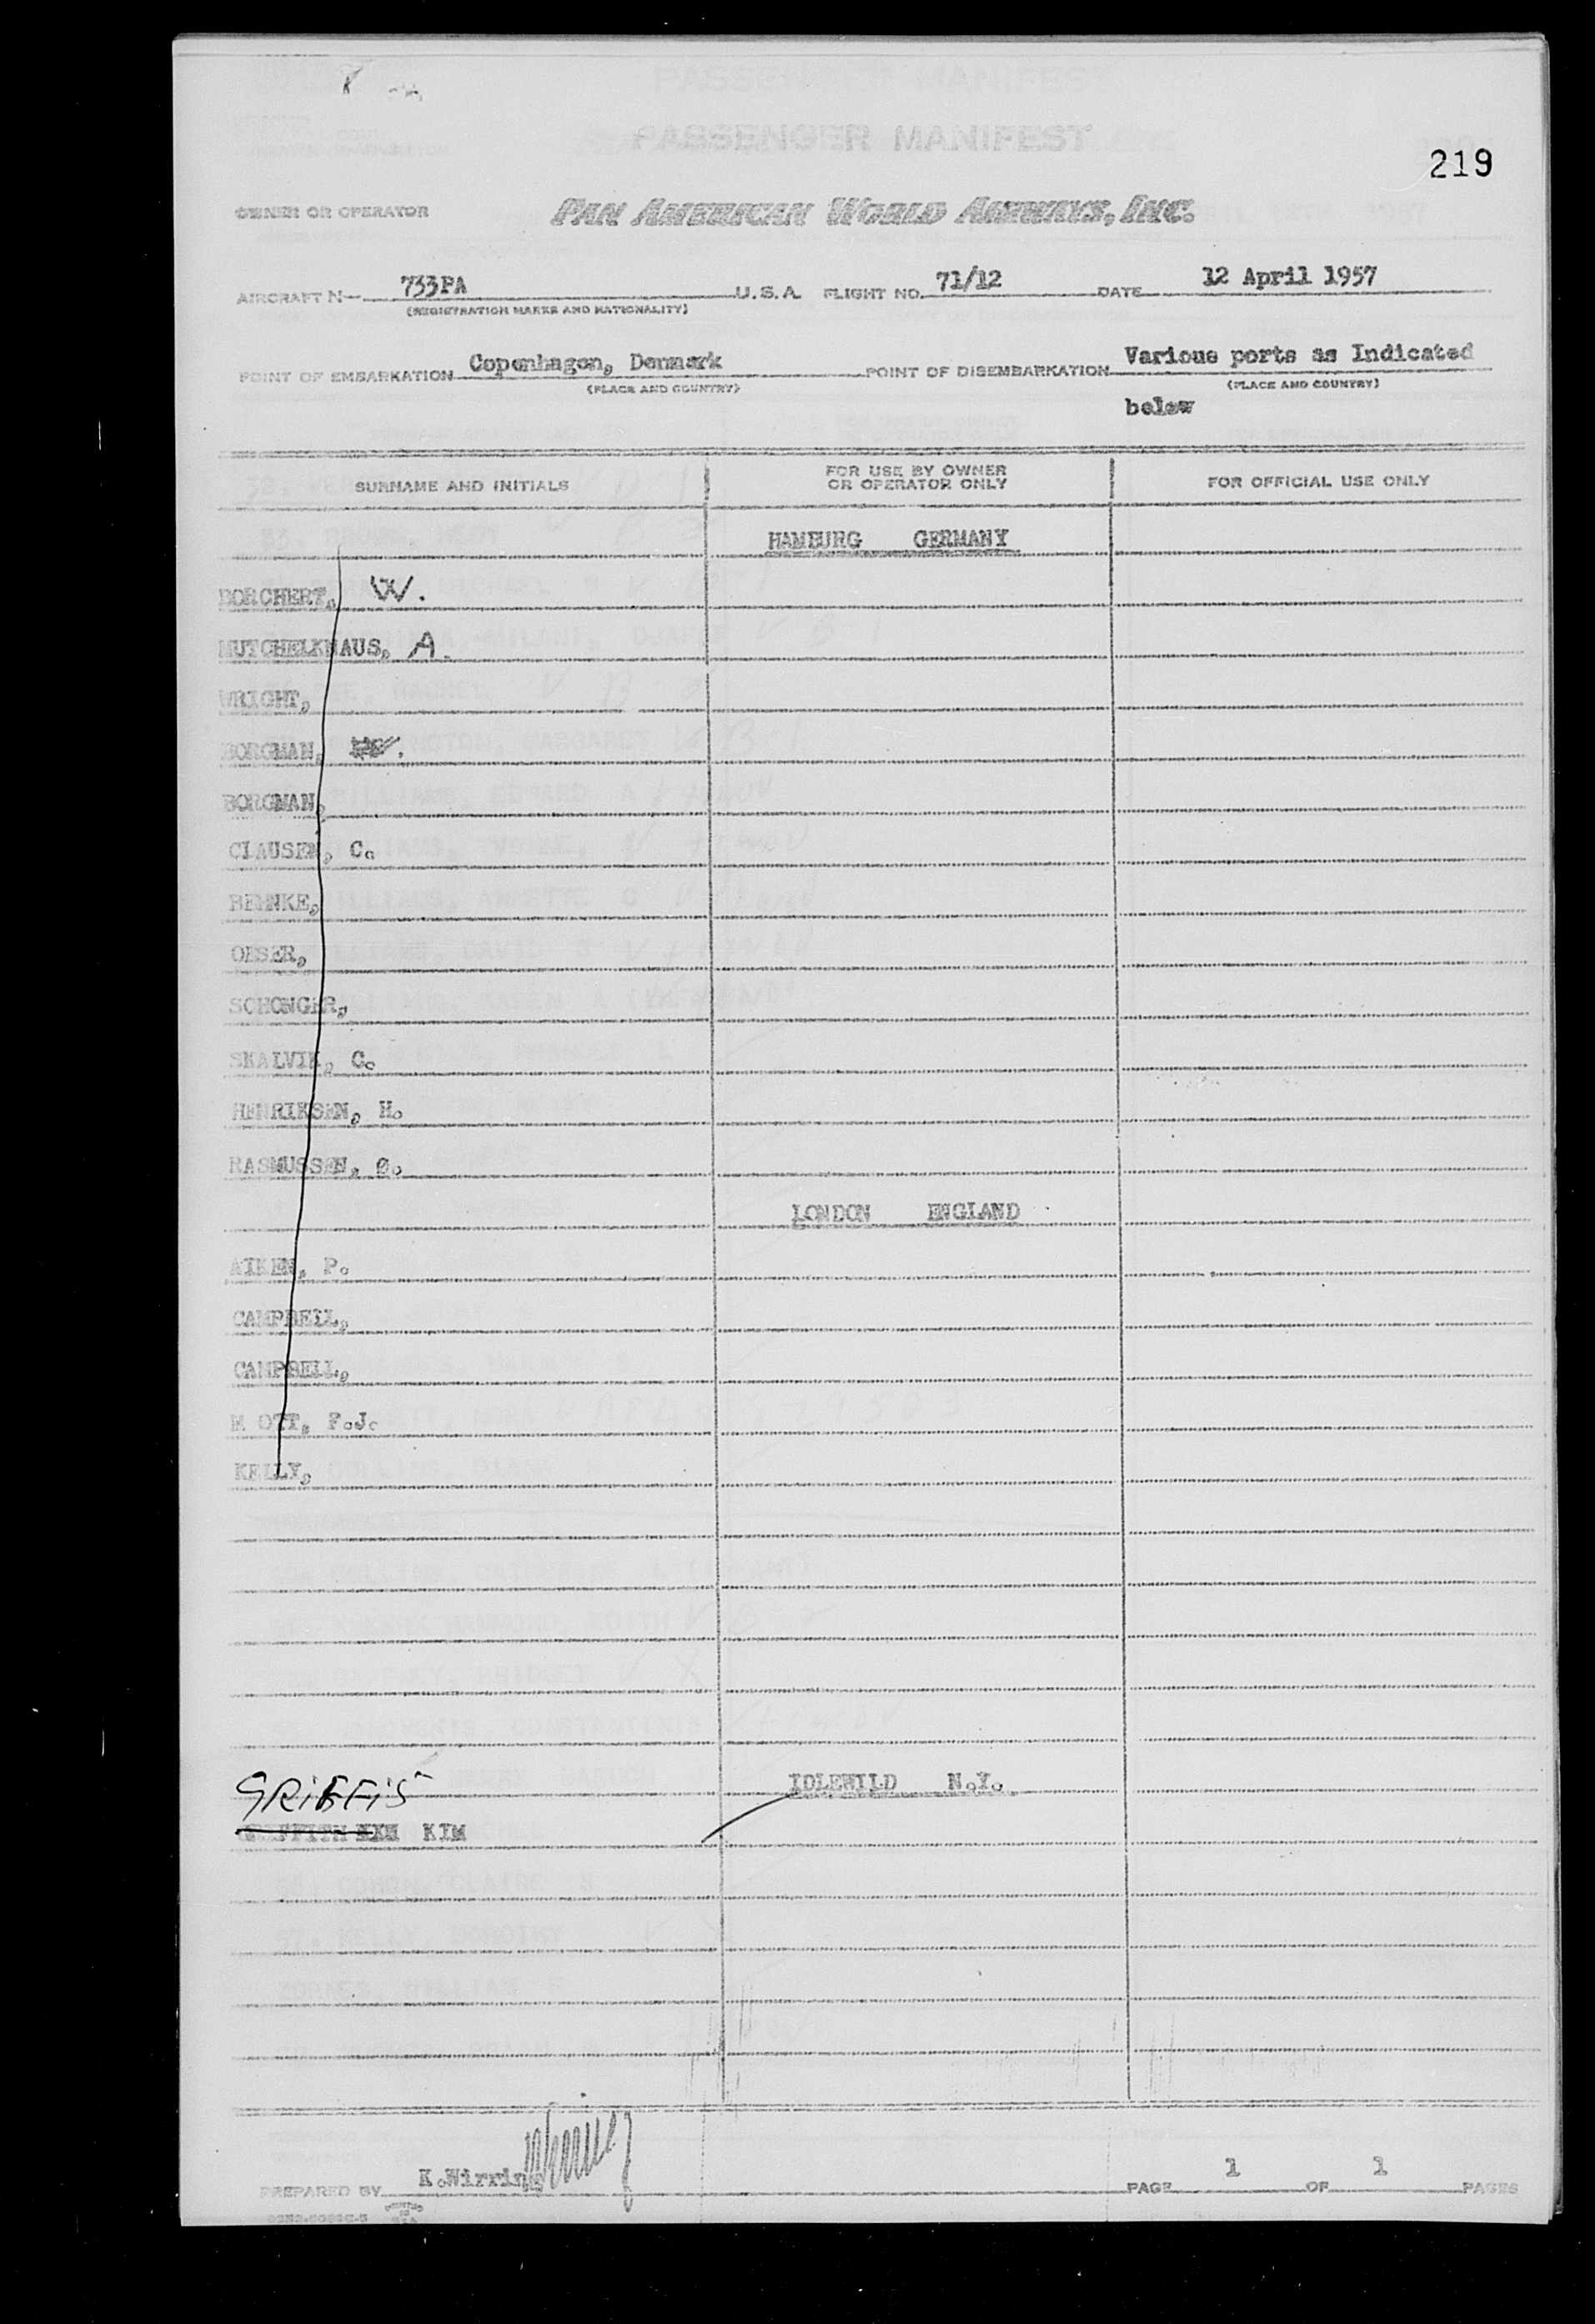 PASSENGER MANIFEST
219
OWNER OR OPERATOR PAN AMERICAN WORLD AIRWAYS, INC.
AIRCRAFT N— 733PA U.S.A. FLIGHT NO. 71/12 DATE 12 April 1957
(REGISTRATION MARKS AND NATIONALITY)
POINT OF EMBARKATION Copenhagen, Denmark POINT OF DISEMBARKATION Various ports as Indicated
(PLACE AND COUNTRY) (PLACE AND COUNTRY)
below
SURNAME AND INITIALS FOR USE BY OWNER OR OPERATOR ONLY FOR OFFICIAL USE ONLY
HAMBURG GERMANY
BORCHERT, W.
MUTCHELKNAUS, A.
WRIGHT,
BORGMAN,
BORGMAN,
CLAUSEN, C.
BEHNKE,
OESER,
SCHONGER,
SKALVIK, C.
HENRIKSEN, H.
RASMUSSEN, Ø.
LONDON ENGLAND
AIKEN, P.
CAMPBELL,
CAMPBELL,
M OTT, F.J.
KELLY,
GRiFFiS IDLEWILD N.Y.
GRIFFITH KIM
PREPARED BY K.Wirring PAGE 1 OF 1 PAGES